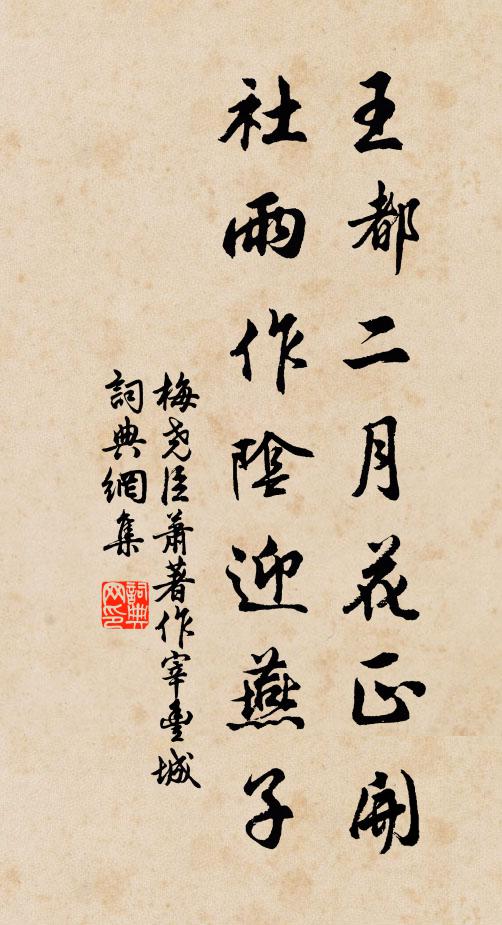 王都二月花正開
社雨作陰迎燕子
梅堯臣蕭著作宰豐城
詞典網集
詞典网印